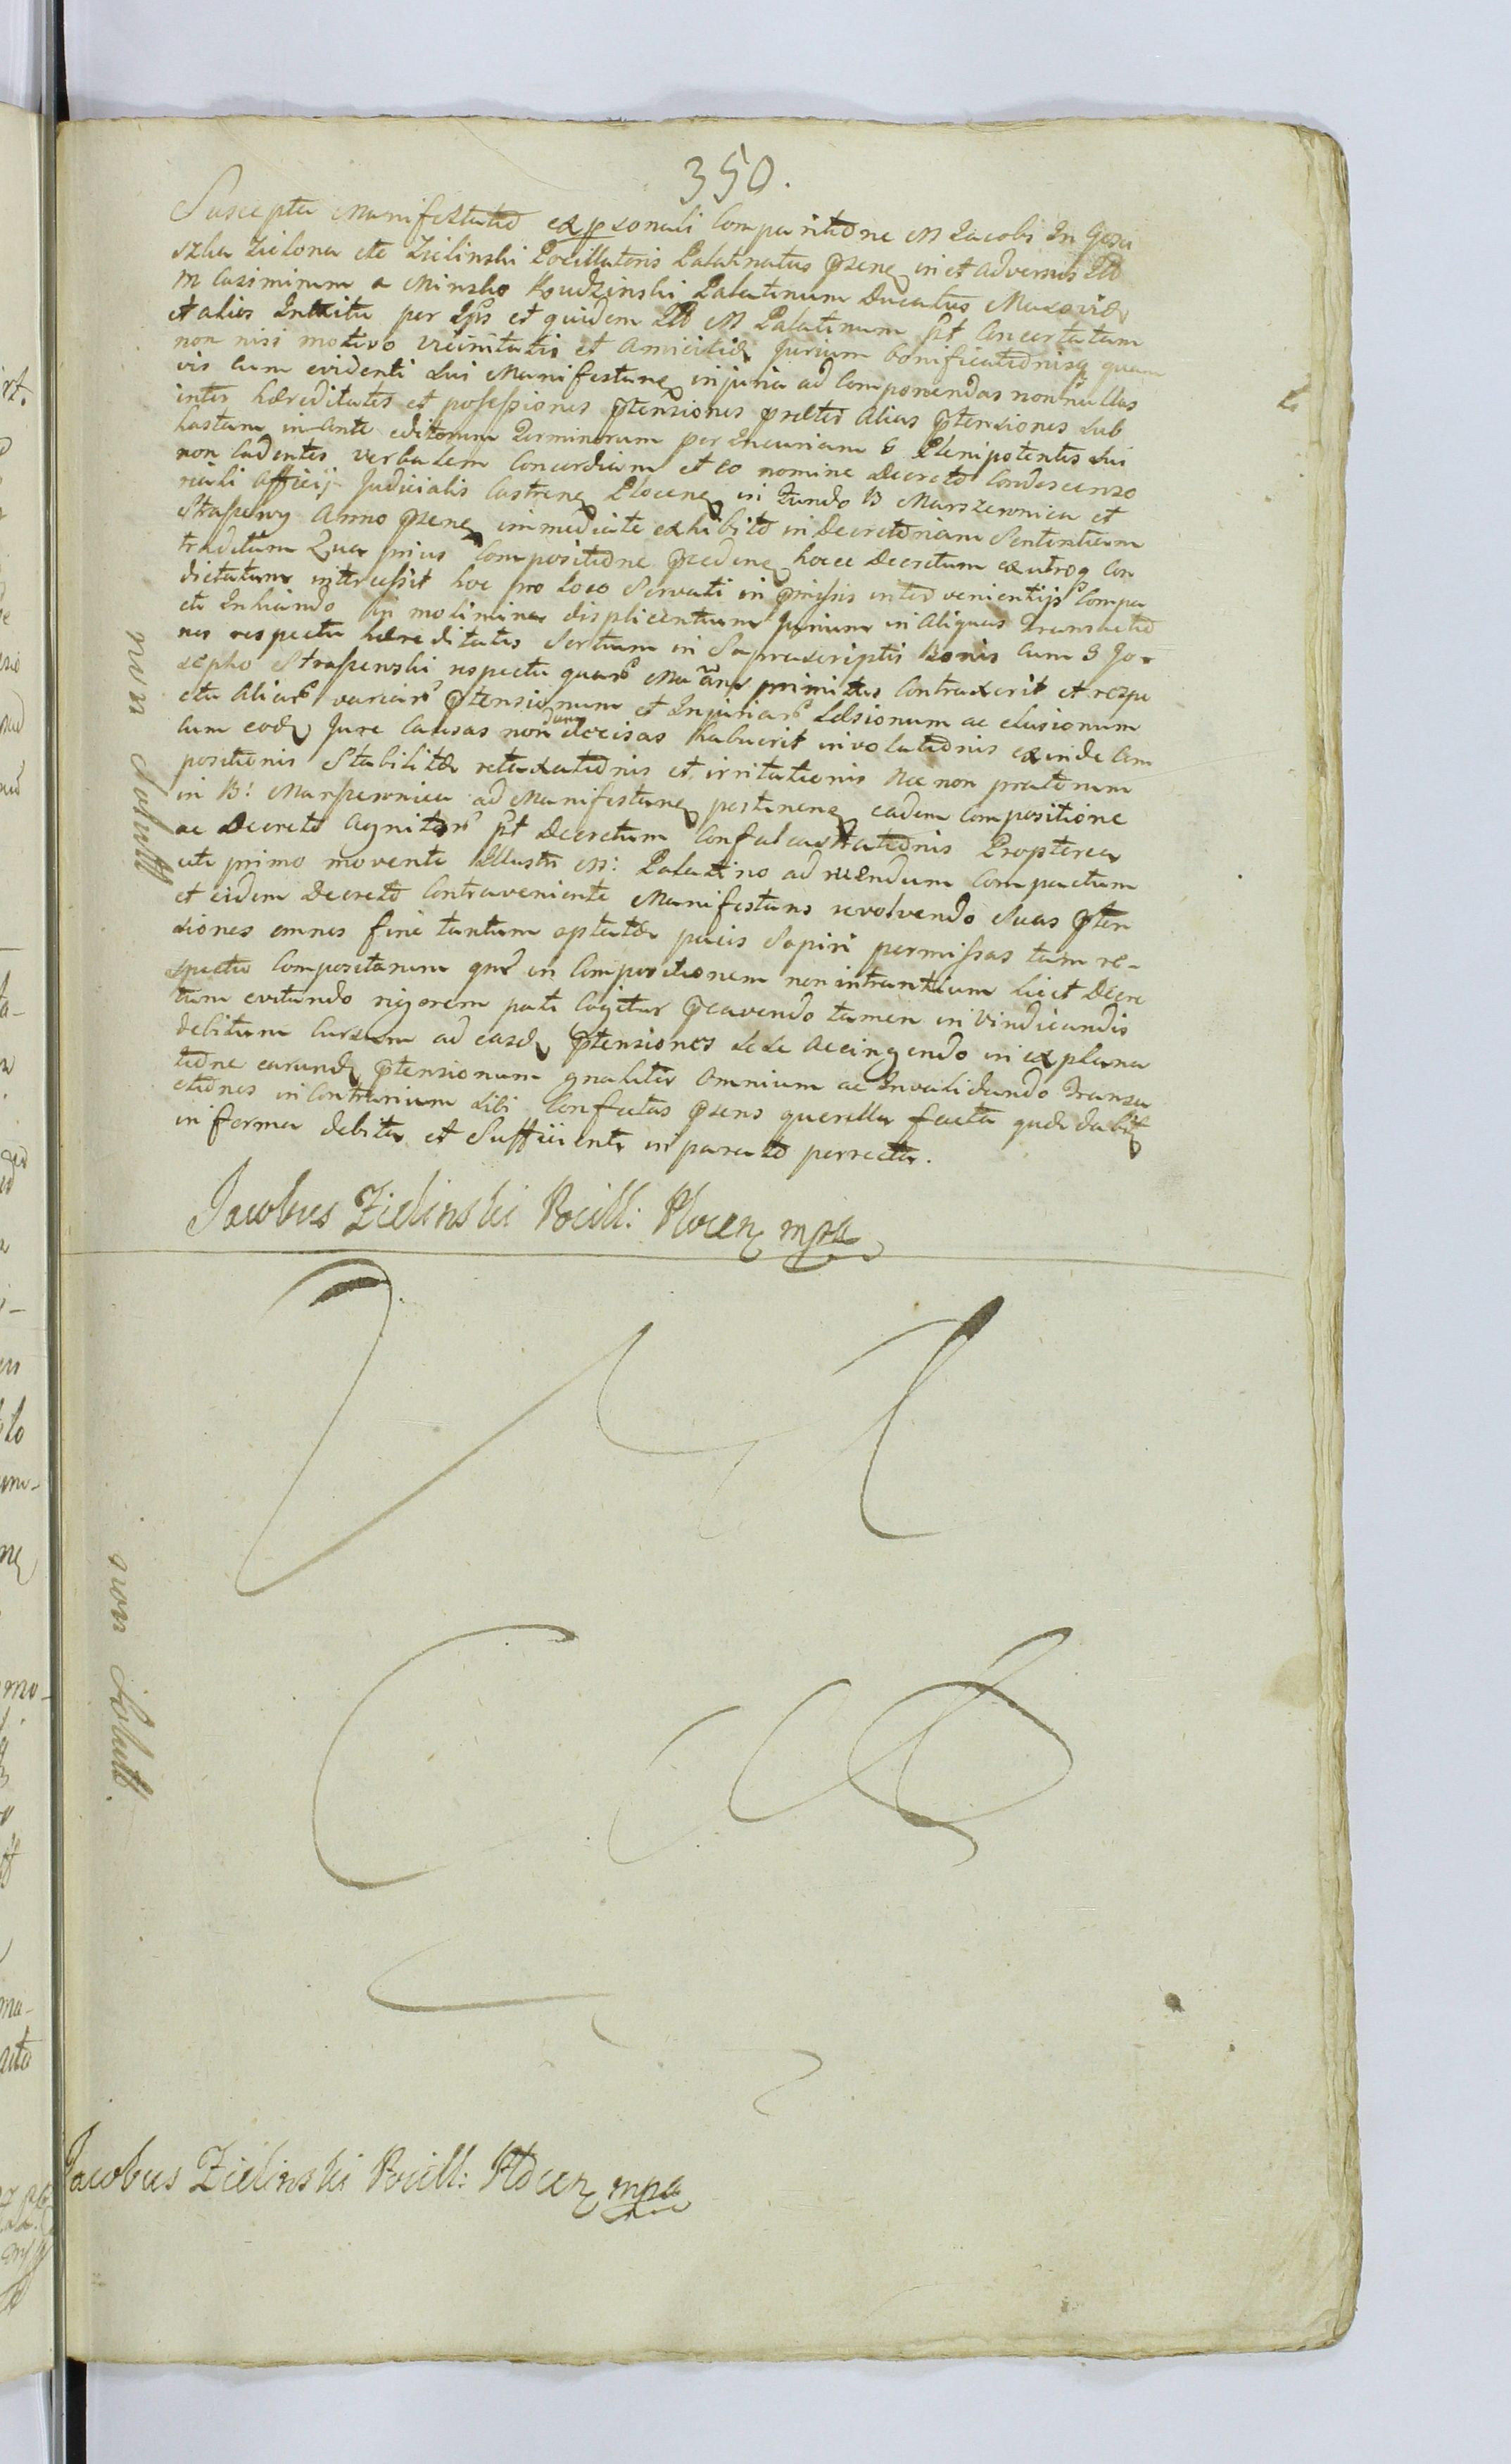 350.
Suscepta Manifestatio ex personali Comparitione M Jacobi In Gosci
szka Zielona etc Zielinski Pocillatoris Palatinatus Ptsenq in et adversus Ill
M Casimirum a Minsko Krudzinski Palatinum Ducatus Masoviæ
et alios Intuitu per Ips et quidem Ill M Palatinum pt Concertatum
non nisi motivo Vicinitatis et Amicitiæ Jurium bonificationisq quam
vis cum evidenti sui Manifestanq injuria ad Componendas nonnullas
inter hæreditates et possessiones ptensiones præter Alias ptensiones sub
hastam in Ante editorum Terminorum per Incuriam G Plenipotentis sui
non Cadentes verbalem Concordiam et eo nomine Decreto Condescenso
riali Officij Judicialis Castrenq Plocenq in Fundo B Marszewnica et
Strassewy Anno psenq immediate exhibito in Decretoriam Sententiam
traditam Quæ prius Compositione pcedenq hocce Decretum ex utroq Con
dictatum intercessit hoc pro loco Servati in pmissis inter venientijs Compa
cti Inhiando in molimina displicentium Jurium in Aliquas Transactio
nes respectu hæreditatis Sortium in Supra scriptis Bonis Cum G Jo-
sepho Strassewski respectu quar Ma primitus Contraxerit et respe
ctu Aliar variar ptensionum et Injuriar Læsionum ac elusionum
Cum eodq Jure Causas non dum decisas habuerit involutionis exinde Com
positionis Stabilitæ retaxationis et irritationis Nec non pratorum
in B: Marssewnica ad Manifestanq pertinenq eadem Compositione
ac Decreto Agnitor pt Decretum Confalcastrationis Propterea
uti primo movente Illustri M: Palatino ad ruendum Compactum
et eidem Decreto Contraveniente Manifestans revolvendo Suas pten
siones omnes fine tantum optatæ pacis Sopiri permissas tam re-
spectu Compositarum qm in Compositionem non intrantium licet Decre
tum evitando rigorem pati Cogitur pcavendo tamen in Vindicandis
debitum Cursum ad easdq ptensiones sese Accingendo in explana
tione earundq ptensionum gnaliter Omnium ac Invalidando Transa
ctiones in Contrarium sibi Confectas psens querella facta
in forma debita et Sufficienti in parato porrecta.
Jacobus Zielinski Pocill: Plocenq mpa
non Solutt
non Solutt.
Jacobus Zielinski Pocill: Plocenq mpa